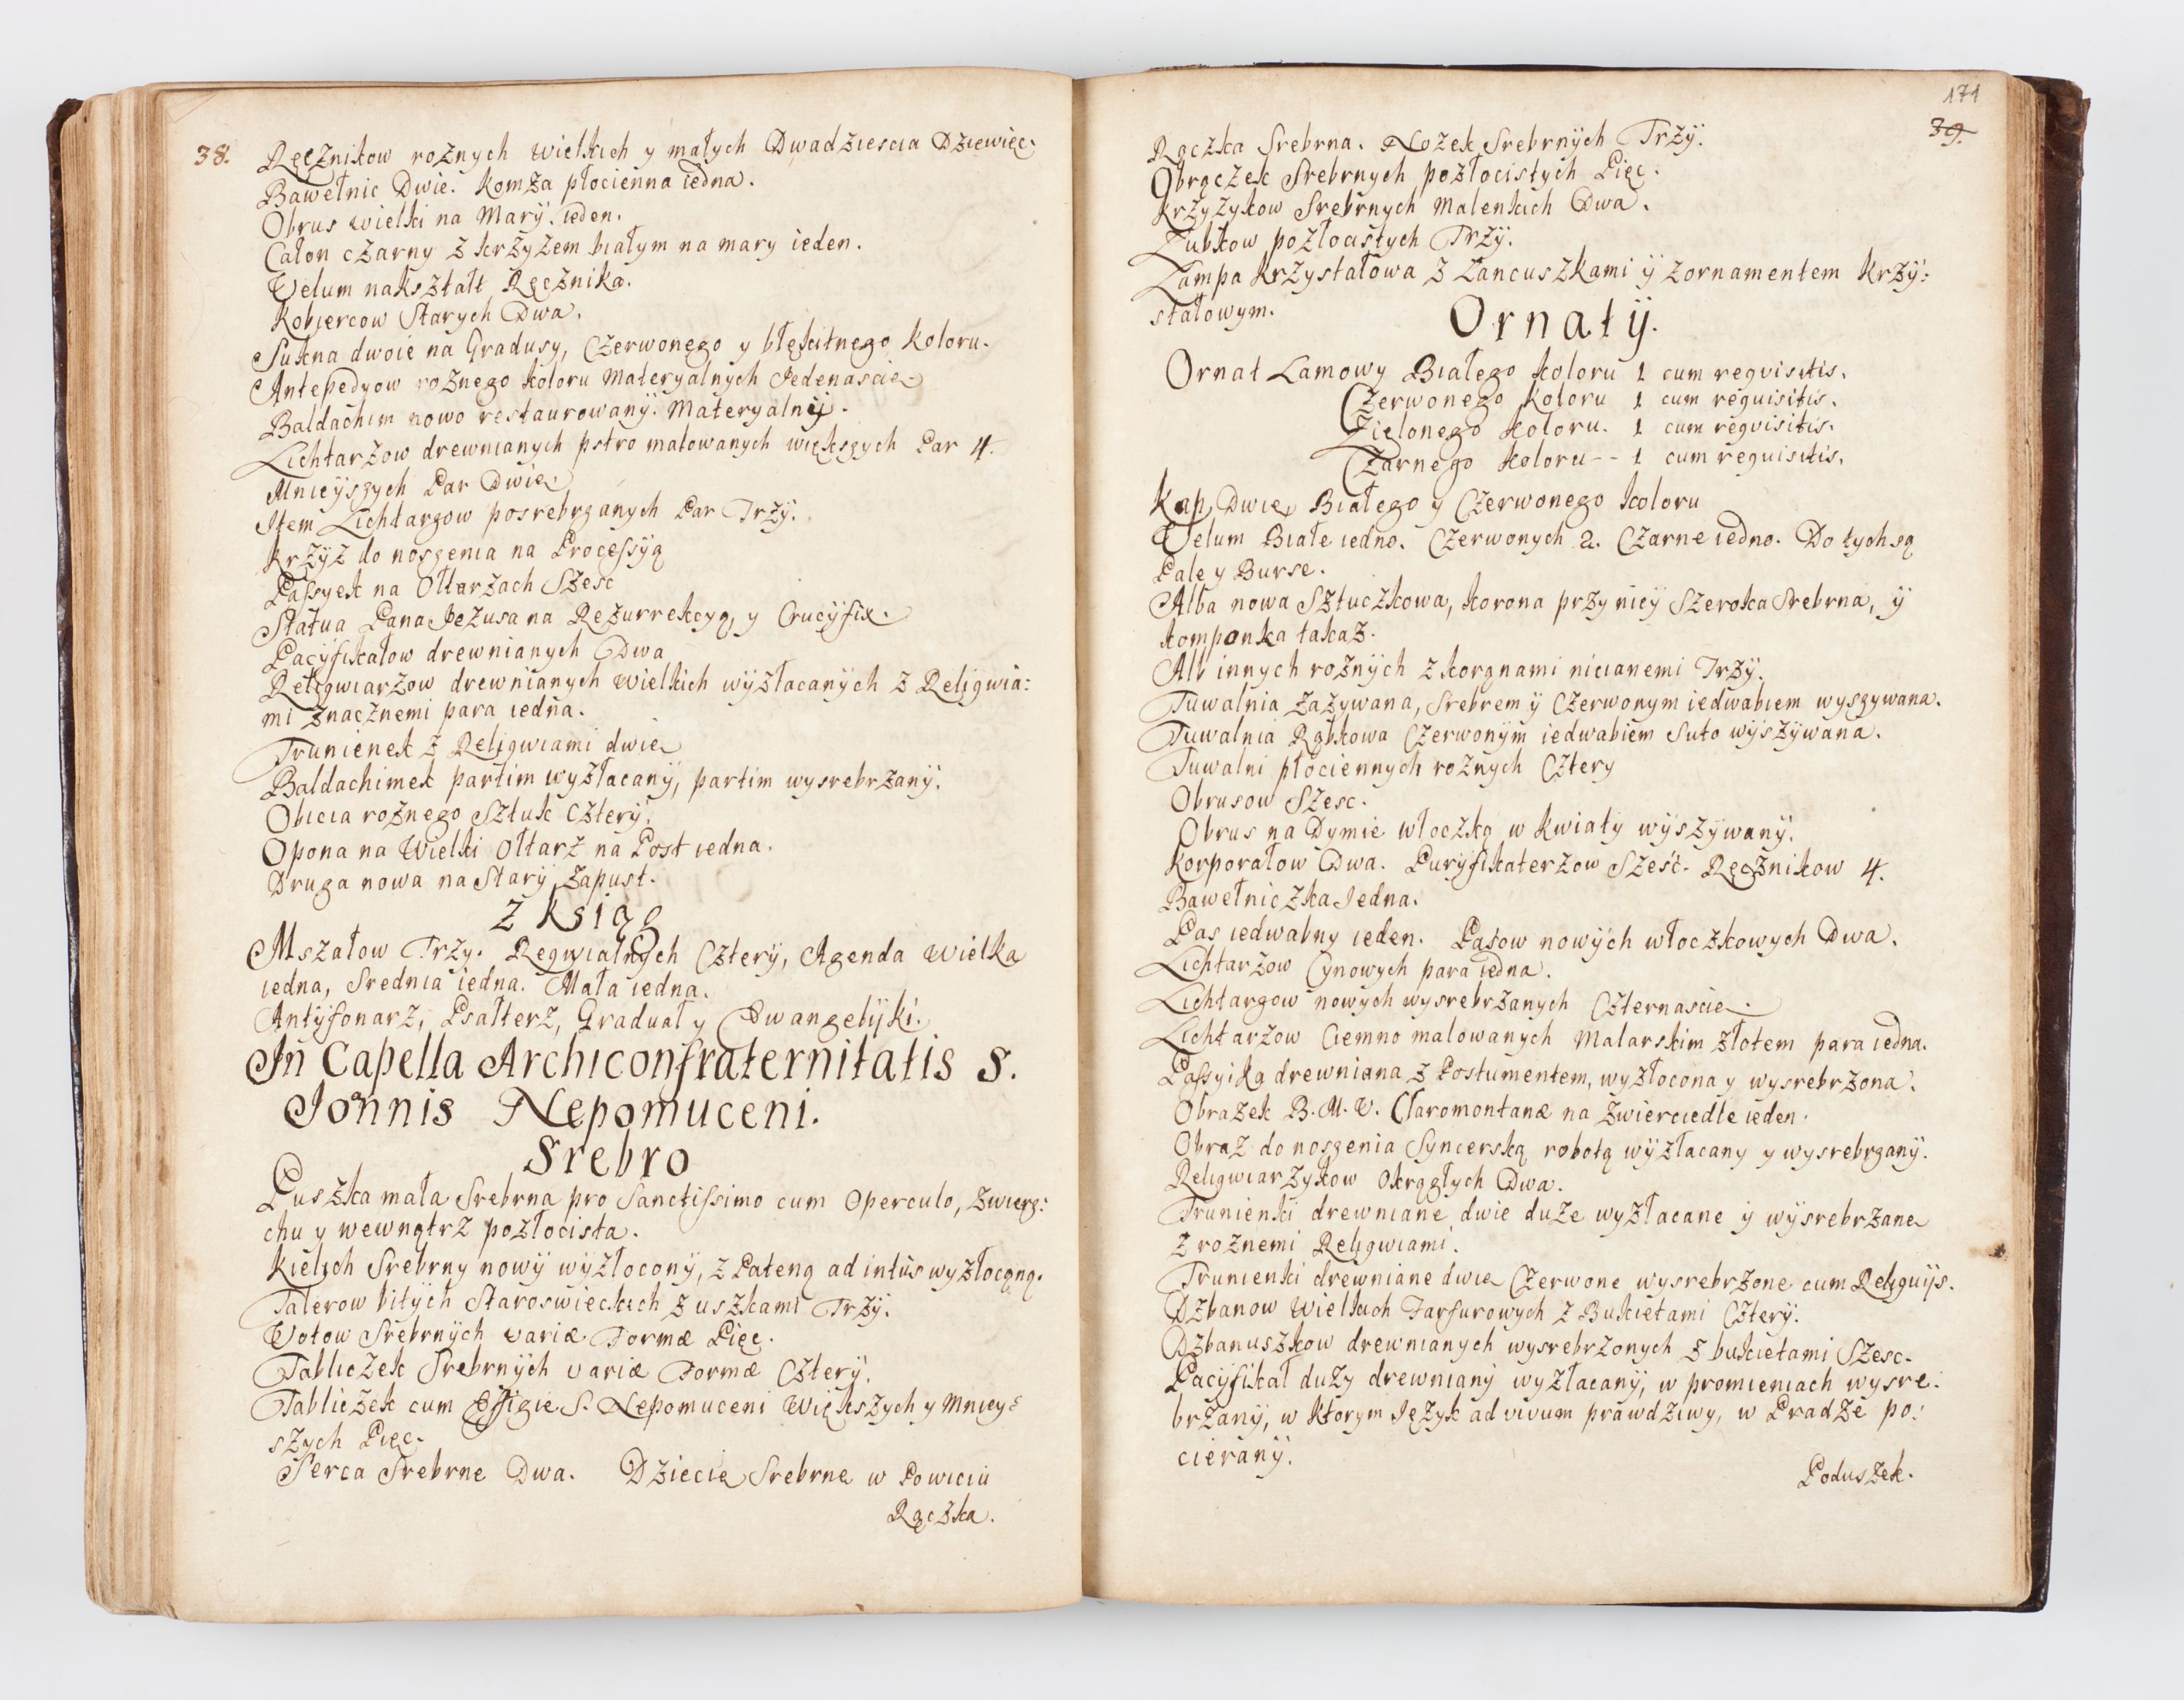 38.
Ręcznikow roznych wielkich y małych Dwadziescia Dziewięc.
Bawełnic Dwie. Komza płocienna iedna.
Obrus wielki na Marÿ. ieden.
Całon czarny z krzyżem białym na mary ieden.
Velum nakształt Ręcznika.
Kobiercow Starych Dwa.
Sukna dwoie na Gradusy, Czerwonego y błękitnego koloru.
Antepedyow roznego koloru Materyalnych Jedenascie
Baldachim nowo restaurowanÿ. Materyalnÿ.
Lichtarzow drewnianych pstro malowanych większych Par 4.
Mnieÿszych Par Dwie
Item Lichtarzow posrebrzanych Par Trzÿ.
Krzÿż do noszenia na Processÿą
Passyek na Ołtarzach Szesc
Statua Pana Jezusa na Rezurrekcyą, y Crucÿfix.
Pacÿfikałow drewnianych Dwa
Religwiarzow drewnianych wielkich wÿzłacanÿch z Religwia:
mi znacznemi para iedna.
Trunienek z Religwiami dwie
Baldachimek partim wyzłacanÿ, partim wysrebrzanÿ.
Obicia roznego Sztuk czterÿ.
Opona na Wielki Ołtarz na Post iedna.
Druga nowa na Starÿ zapust.
z Ksiąg
Mszałow Trzy. Regwialnÿch Czterÿ, Agenda Wielka
iedna, Srednia iedna. Mała iedna.
Antÿfonarz, Psałterz, Graduał y Ewangelÿki.
In Capella Archiconfraternitatis S.
Joñnis Nepomuceni.
Srebro
Puszka mała Srebrna pro Sanctissimo cum Operculo, zwierz:
chu y wewnątrz pozłocista.
Kielich Srebrny nowÿ wÿzłoconÿ, z Pateną ad intus wyzłoconą.
Talerow bitÿch Staroswieckich z uszkami Trzÿ.
Votow Srebrnÿch variæ Formæ Pięc.
Tabliczek Srebrnÿch variæ Formæ Czterÿ.
Tabliczek cum Effigie S. Nepomuceni Większych y Mniey:
szych Pięc.
Serca Srebrne Dwa. Dziecie Srebrne w Powiciu
Rączka.
171
39.
Rączka Srebrna. Nozek Srebrnÿch Trzÿ.
Obrączek Srebrnych pozłocistych Pięc.
Krzyzykow Srebrnych Malenkich Dwa.
Lubkow pozłocistych Trzÿ.
Lampa Krzystałowa z Lancuszkami ÿ zornamentem Krzÿ:
stałowym.
Ornatÿ.
Ornat Lamowy Białego koloru 1 cum requisitis.
Czerwonego koloru 1 cum requisitis.
Zielonego koloru. 1 cum requisitis.
Czarnego koloru -- 1 cum requisitis.
Kap Dwie Białego y Czerwonego koloru
Velum Białe iedno. Czerwonych 2. Czarne iedno. Do tych są
Palę y Burse.
Alba nowa Sztuczkowa, korona przy nieÿ Szeroka Srebrna, ÿ
komponka takaz.
Alb innych roznÿch z korgnami nicianemi Trzÿ.
Tuwalnia zazywana, Srebrem ÿ Czerwonym iedwabiem wyszywana.
Tuwalnia Rąbkowa Czerwonÿm iedwabiem Suto wÿszÿwana.
Tuwalni płociennych roznÿch Cztery
Obrusow Szesc.
Obrus na Dymie włoczką w kwiatÿ wÿszÿwanÿ.
Korporałow Dwa. Purÿfikaterzow Szesc. Ręcznikow 4.
Bawełniczka Jedna.
Pas iedwabny ieden. Pasow nowÿch włoczkowych Dwa.
Lichtarzow Cynowych para iedna.
Lichtarzow nowych wysrebrzanych Czternascie
Lichtarzow Ciemno malowanych Malarskim złotem para iedna.
Passyika drewniana z Postumentem, wyzłocona y wysrebrzona.
Obrazek B. M. V. Claromontanæ na zwierciedle ieden.
Obraz do noszenia Syncerską robotą wÿzłacany y wysrebrzanÿ.
Religwiarzykow Okrągłych Dwa.
Trunienki drewniane dwie duże wyzłacane ÿ wÿsrebrzane
z roznemi Religwiami.
Trunienki drewniane dwie Czerwone wysrebrzone cum Reliquÿs.
Dzbanow Wielkich Farfurowych z Bukietami Czterÿ.
Dzbanuszkow drewnianych wysrebrzonych z bukietami Szesc.
Pacÿfikał duży drewnianÿ wyzłacanÿ, w promieniach wysre:
brzanÿ, w Ktorym Język ad vivum prawdziwy, w Pradze po:
cieranÿ.
Poduszek.